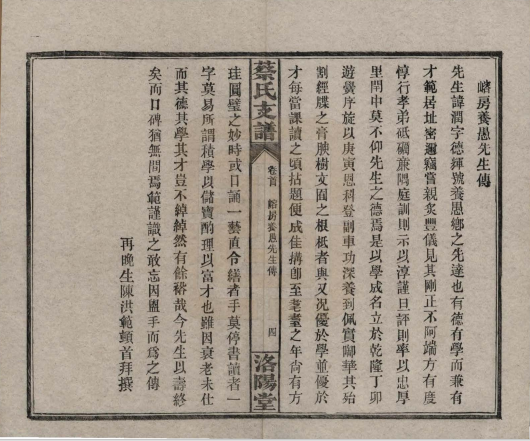 嵴房養愚先生傳
先生諱潤字德輝號養愚鄉之先達也有德有學而兼有
才範居址密邇竊嘗親炙豐儀見其剛正不阿端方有度
惇行孝弟砥礪廉隅庭訓則示以淳謹旦評則率以忠厚
里閈中莫不仰先生之德焉是以學成名立於乾隆丁卯
遊黌序旋以庚寅恩科登副車功深養到佩實啣華其殆
割經牒之膏腴樹文囿之根柢者與又況優於學並優於
才每當課讀之頃拈題便成佳搆卽至耄耋之年尙有方
蔡氏支譜
卷首
嵴房養愚先生傳
四
洛陽堂
珪圓璧之妙時或口誦一藝直令繕者手莫停書讀者一
字莫易所謂積學以儲寶酌理以富才也雖因衰老未仕
而其德其學其才豈不綽綽然有餘裕哉今先生以壽終
矣而口碑猶無間焉範謹識之敢忘因盥手而爲之傳
再晚生陳洪範頓首拜撰